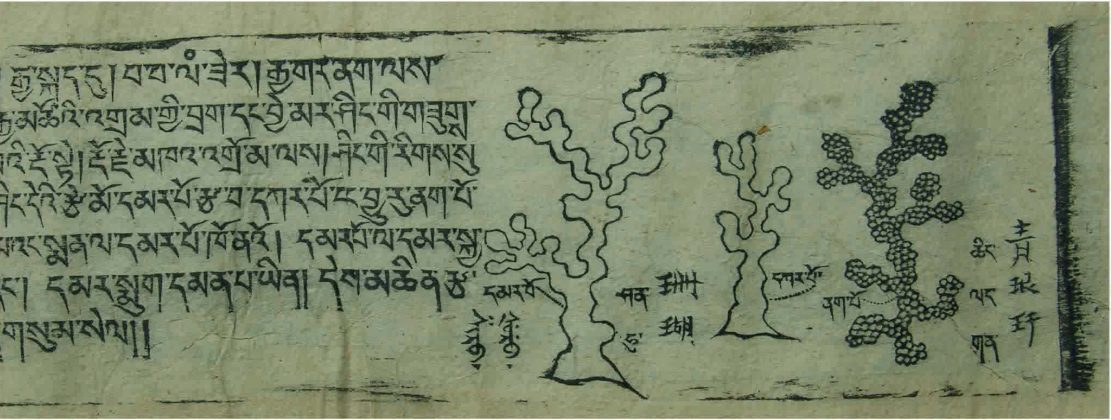 རྒྱ་སྐད་དུ། བ་བ་ལཾ་ཟེར། རྒྱ་གར་ནག་ལས་
རྒྱ་མཚོའི་འགྲམ་གྱི་བྲག་དང་བྱེ་མར་ཤིང་གི་གཟུགས་
པའི་རྡོ་སྟེ། རྡོ་རྗེ་མཁའ་འགྲོ་མ་ལས། ཤིང་གི་རིགས་སུ་
ཤིང་དེའི་རྩེ་མོ་དམར་པོ་རྩ་བ་དཀར་པོ་ང་བྱུ་རུ་ནག་པོ་
སྨན་ལ་དམར་པོ་ཁོ་ནའོ། དམར་པོ་ལ་དམར་སྐྱ་
དང༌། དམར་སྨུག་དམན་པ་ཡིན། དེས་མཆིན་རྩ་
གསུམ་སེལ།།
དམར་པོ་
ཤན་
ཧུ་
དཀར་པོ་
ནག་པོ་
ཆིང་
ལང་
གན་
青琅玕
珊瑚